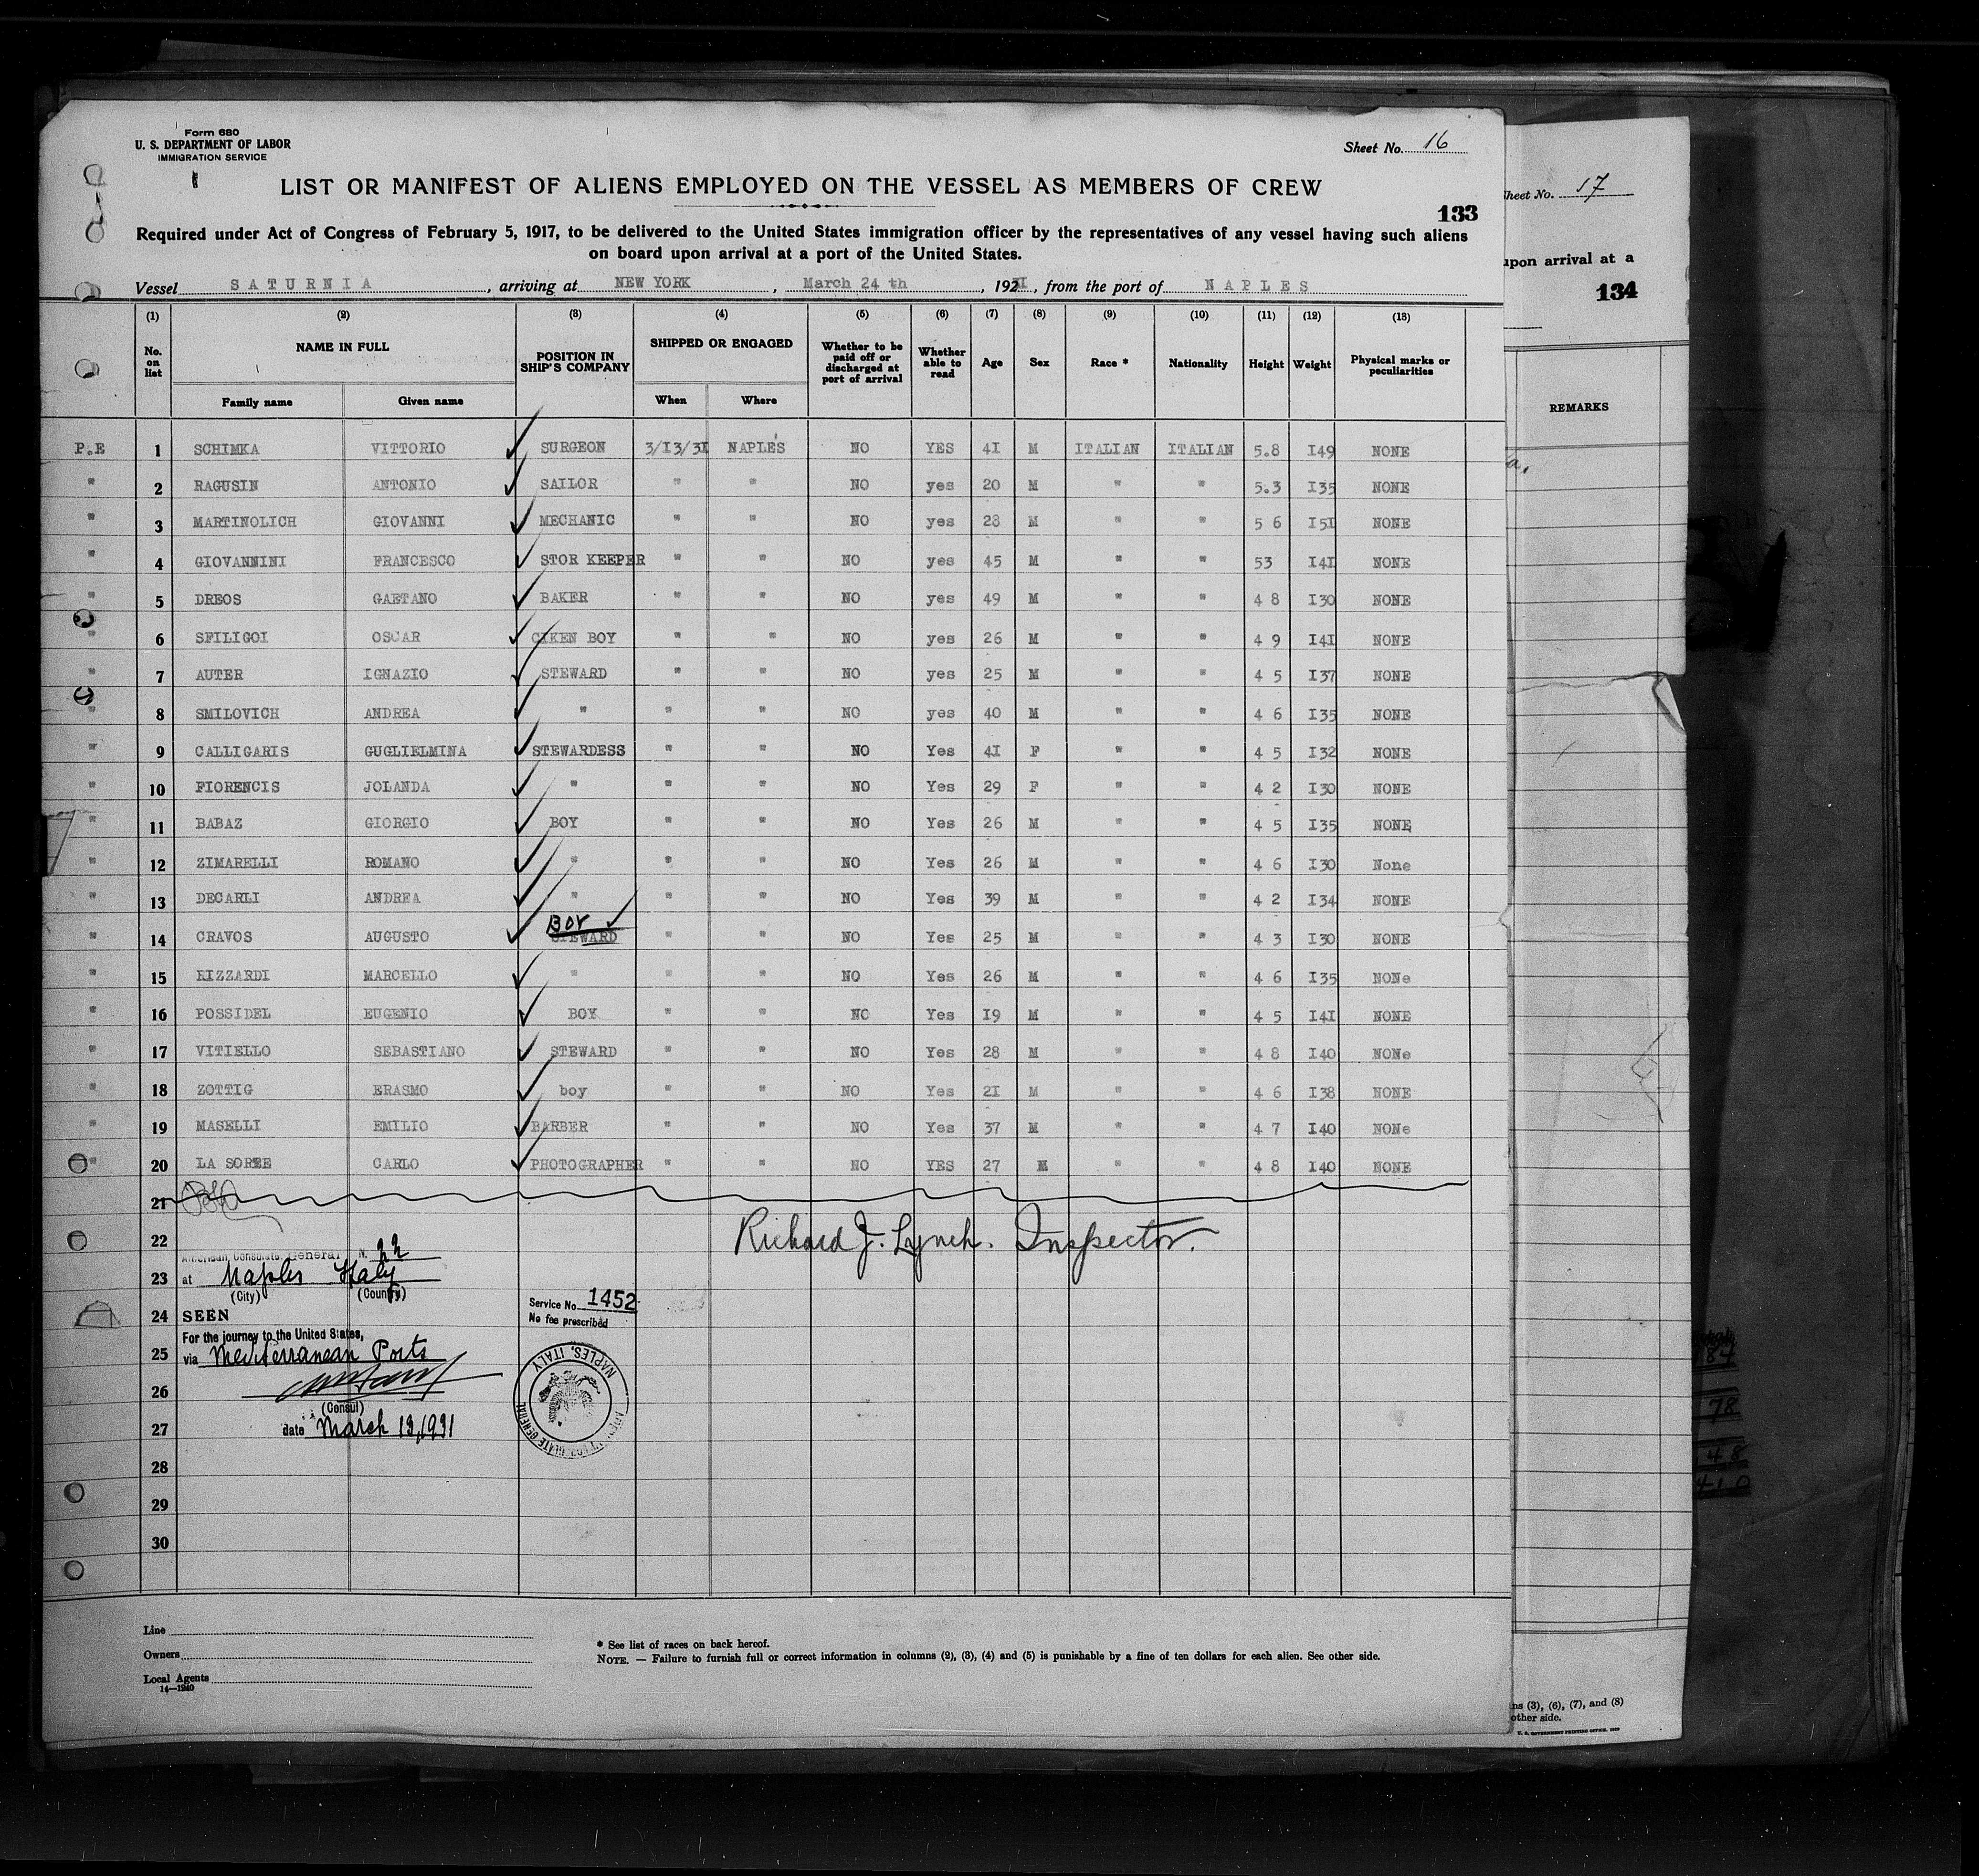 Form 680
U. S. DEPARTMENT OF LABOR
IMMIGRATION SERVICE
Sheet No. 16
LIST OR MANIFEST OF ALIENS EMPLOYED ON THE VESSEL AS MEMBERS OF CREW
133
Required under Act of Congress of February 5, 1917, to be delivered to the United States immigration officer by the representatives of any vessel having such aliens
on board upon arrival at a port of the United States.
Vessel SATURNIA, arriving at NEW YORK, March 24 th, 1931, from the port of NAPLES
(1) (2) (3) (4) (5) (6) (7) (8) (9) (10) (11) (12) (13)
No. on list NAME IN FULL POSITION IN SHIP'S COMPANY SHIPPED OR ENGAGED Whether to be paid off or discharged at port of arrival Whether able to read Age Sex Race * Nationality Height Weight Physical marks or peculiarities
Family name Given name When Where
P.E 1 SCHIMKA VITTORIO SURGEON 3/I3/3I NAPLES NO YES 4I M ITALIAN ITALIAN 5.8 I49 NONE
" 2 RAGUSIN ANTONIO SAILOR " " NO yes 20 M " " 5.3 I35 NONE
" 3 MARTINOLICH GIOVANNI MECHANIC " " NO yes 28 M " " 5 6 I5I NONE
" 4 GIOVANNINI FRANCESCO STOR KEEPER " " NO yes 45 M " " 53 I4I NONE
" 5 DREOS GAETANO BAKER " " NO yes 49 M " " 4 8 I30 NONE
" 6 SFILIGOI OSCAR CIKEN BOY " " NO yes 26 M " " 4 9 I4I NONE
" 7 AUTER IGNAZIO STEWARD " " NO yes 25 M " " 4 5 I37 NONE
" 8 SMILOVICH ANDREA " " " NO yes 40 M " " 4 6 I35 NONE
" 9 CALLIGARIS GUGLIELMINA STEWARDESS " " NO Yes 4I F " " 4 5 I32 NONE
" 10 FIORENCIS JOLANDA " " " NO Yes 29 F " " 4 2 I30 NONE
" 11 BABAZ GIORGIO BOY " " NO Yes 26 M " " 4 5 I35 NONE
" 12 ZIMARELLI ROMANO " " " NO Yes 26 M " " 4 6 I30 None
" 13 DECARLI ANDREA " " " NO Yes 39 M " " 4 2 I34 NONE
BOY
" 14 CRAVOS AUGUSTO STEWARD " " NO Yes 25 M " " 4 3 I30 NONE
" 15 RIZZARDI MARCELLO " " " NO Yes 26 M " " 4 6 I35 NONe
" 16 POSSIDEL EUGENIO BOY " " NO Yes I9 M " " 4 5 I4I NONE
" 17 VITIELLO SEBASTIANO STEWARD " " NO Yes 28 M " " 4 8 I40 NONe
" 18 ZOTTIG ERASMO boy " " NO Yes 2I M " " 4 6 I38 NONE
" 19 MASELLI EMILIO BARBER " " NO Yes 37 M " " 4 7 I40 NONe
" 20 LA SOREE CARLO PHOTOGRAPHER " " NO YES 27 M " " 4 8 I40 NONE
21
22 Richard J. Lynch. Inspector.
American Consulate General N. 22
23 at Naples Italy
(City) (Country)
24 SEEN
Service No. 1452
No fee prescribed
For the journey to the United States,
25 via Mediterranean Ports
26
(Consul)
27 date March 13, 1931
NAPLES, ITALY
28
29
30
Line
Owners
Local Agents
14—1240
* See list of races on back hereof.
NOTE. — Failure to furnish full or correct information in columns (2), (3), (4) and (5) is punishable by a fine of ten dollars for each alien. See other side.
Sheet No. 17
upon arrival at a
134
REMARKS
ns (3), (6), (7), and (8)
other side.
U. S. GOVERNMENT PRINTING OFFICE
78
48